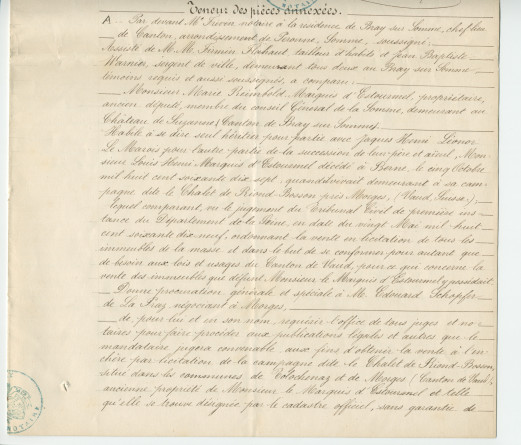 Teneur des pièces annexées.
A. Par devant Me Frévin notaire à la résidence de Bray sur Somme, chef lieu
de Canton, arrondissement de Péronne, Somme, soussigné.
Assisté de M M. Firmin tailleur d'habits et Jean Baptiste
Warnier, sergent de ville, demeurant tous deux au Bray sur Somme
témoins requis et aussi soussignés, a comparu.
Monsieur Marie Reimbold Marquis d'Estourmel, propriétaire,
ancien député, membre du conseil Général de la Somme, demeurant au
Château de Suzanne (Canton de Bray sur Somme).
Habile à se dire seul héritier pour partie avec Jaques Henri Léonor
Le Marois pour l'autre partie de la succession de leur père et aïeul, Mon-
sieur Louis Henri Marquis d'Estourmel décédé à Berne, le cinq Octobre
mil huit cent soixante dix sept, quand il vivait demeurant à sa cam-
pagne, dite le Chalet de Riond-Bosson près Morges, (Vaud, Suisse),
lequel comparant, vu le jugement du Tribunal Civil de première ins-
tance du Département de la Seine, en date du vingt Mai mil huit
cent soixante dix neuf, ordonnant la vente en licitation de tous les
immeubles de la masse et dans le but de se conformer pour autant que
de besoin aux lois et usages du Canton de Vaud, pour ce qui concerne la
vente des immeubles que défunt Monsieur le Marquis d'Estourmel y possédait
Donne procuration générale et spéciale à M. Edouard Schopfer
de La Praz négociant à Morges,
de, pour lui et en son nom, requérir l'office de tous juges et no-
taires pour faire procéder aux publications légales et autres que le
mandataire jugera convenable aux fins d'obtenir la vente à l'en-
chère par licitation de la campagne dite le Chalet de Riond-Bosson,
située dans les communes de Tolochenaz et de Morges (Canton de Vaud),
ancienne propriété de Monsieur le Marquis d'Estourmel et telle
qu'elle se trouve désignée par le cadastre officiel, sans garantie de
NOTAIRE